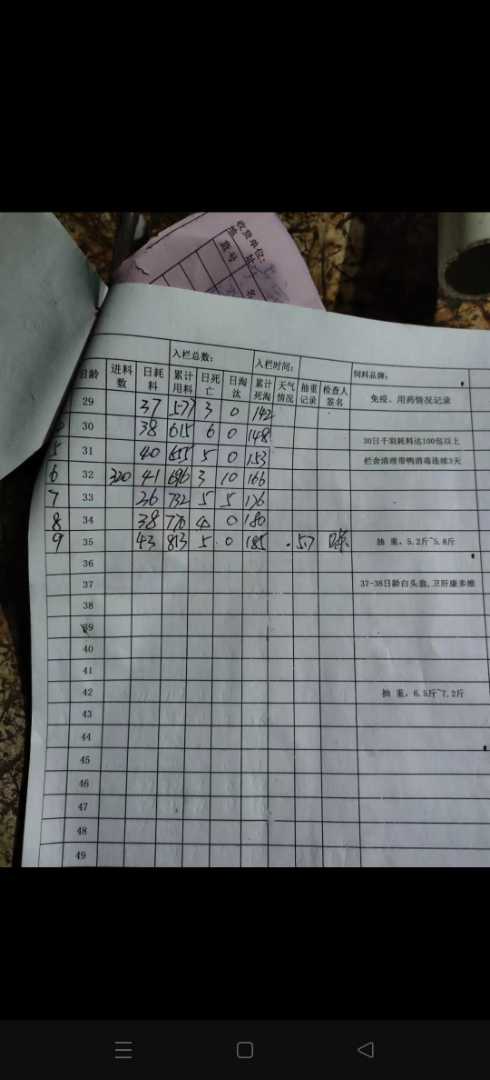 收货单位:
入栏总数: 入栏时间: 饲料品牌:
日龄 进料数 日耗料 累计用料 日死亡 日淘汰 累计死淘 天气情况 抽重记录 检查人签名 免疫、用药情况记录
29 37 577 3 0 142
30 38 615 6 0 148 30日千羽耗料达100包以上
5 31 40 655 5 0 153 栏舍清理带鸭消毒连续3天
6 32 320 41 696 3 10 166
7 33 36 732 5 5 176
8 34 38 770 4 0 180
9 35 43 813 5 0 185 5.7 抽 重:5.2斤~5.8斤
36
37 37-38日龄白头翁,卫肝康多维
38
39
40
41
42 抽 重:6.5斤~7.2斤
43
44
45
46
47
48
49